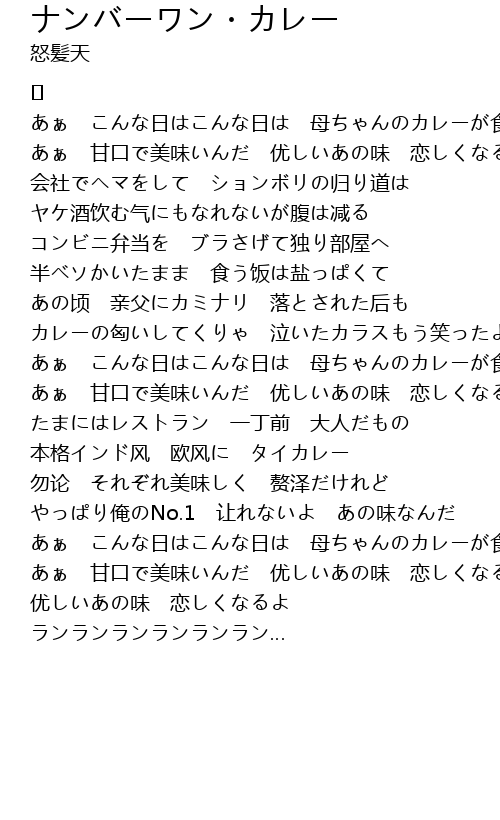 ナンバーワン・カレー
怒髪天
あぁ　こんな日はこんな日は　母ちゃんのカレーが食
あぁ　甘口で美味いんだ　优しいあの味　恋しくなる
会社でヘマをして　ションボリの帰り道は
ヤケ酒饮む气にもなれないが腹は减る
コンビニ弁当を　ブラさげて独り部屋へ
半ベソかいたまま　食う饭は盐っぱくて
あの顷　亲父にカミナリ　落とされた后も
カレーの匈いしてくりゃ　泣いたカラスもう笑ったよ
あぁ　こんな日はこんな日は　母ちゃんのカレーが食
あぁ　甘口で美味いんだ　优しいあの味　恋しくなる
たまにはレストラン　一丁前　大人だもの
本格インド风　欧风に　タイカレー
勿论　それぞれ美味しく　赘泽だけれど
やっぱり俺のNo.1　让れないよ　あの味なんだ
あぁ　こんな日はこんな日は　母ちゃんのカレーが食
あぁ　甘口で美味いんだ　优しいあの味　恋しくなる
优しいあの味　恋しくなるよ
ランランランランランラン...